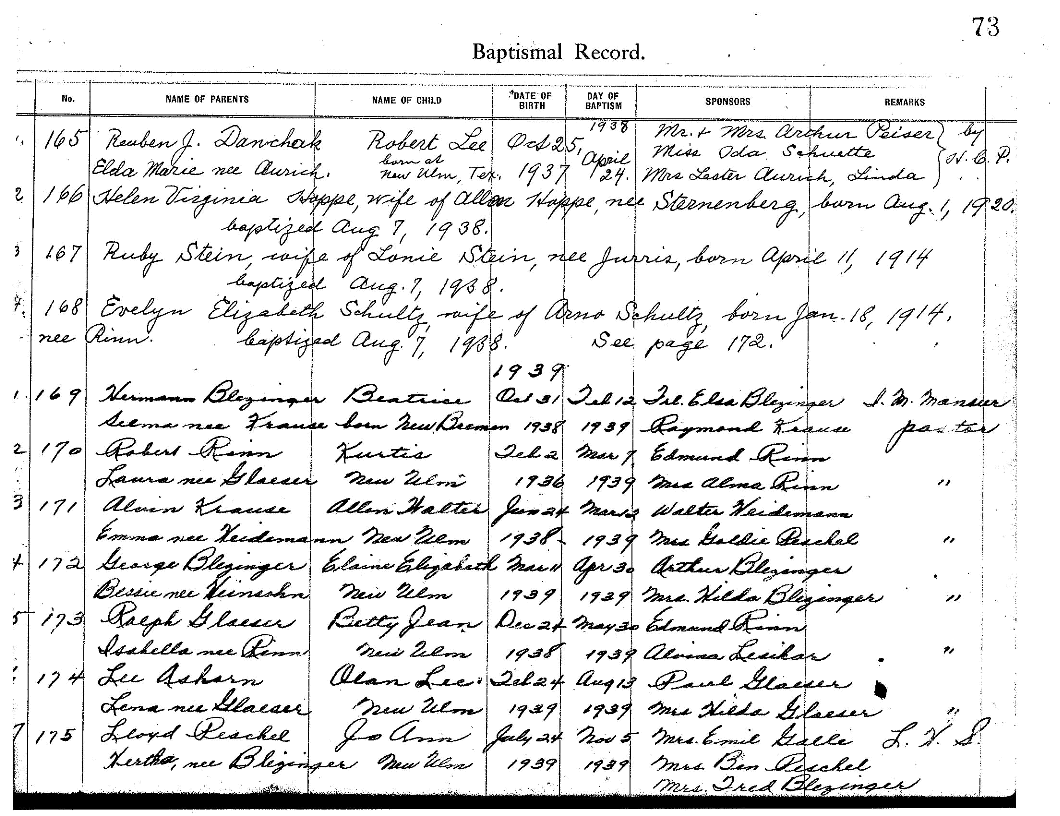 73
Baptismal Record.
No. NAME OF PARENTS NAME OF CHILD *DATE OF BIRTH DAY OF BAPTISM SPONSORS REMARKS
1. 165 Reuben J. Danchak Robert Lee Oct 25, 1938 Mr. + Mrs Arthur Peiser } by
born at April Miss Ida Schuette H. C. P.
Elda Marie nee Aurich. New Ulm, Tex. 1937 24. Mrs Lester Aurich, Linda
2 166 Helen Virginia Hoppe, wife of Allan Hoppe, nee Sternenberg, born Aug. 1, 1920.
baptized Aug 7, 1938.
3 167 Ruby Stein, wife of Lonie Stein, nee Jurris, born April 11, 1914
baptized Aug. 7, 1938.
4. 168 Evelyn Elizabeth Schultz, wife of Arno Schultz, born Jan. 18, 1914.
nee Rinn. baptized Aug. 7, 1938. See page 172.
1939
1. 169 Hermann Blezinger Beatrice Oct 31 Feb 12 Frl. Elsa Blezinger I. M. Mansur
Selma nee Krause born New Bremen 1938 1939 Raymond Krause pastor
2 170 Robert Rinn Kurtis Feb 2 Mar 7 Edmund Rinn
Laura nee Glaeser New Ulm 1936 1939 Mrs Alma Rinn "
3 171 Alvin Krause Allen Walter Jun 24 Mar 12 Walter Heidemann
Emma nee Heidemann New Ulm 1938- 1939 Mrs Goldie Peschel "
4 172 George Blezinger Elaine Elizabeth Mar 11 Apr 30 Arthur Blezinger
Bessie nee Heinsohn New Ulm 1939 1939 Mrs. Hilda Blezinger "
5 173 Ralph Glaeser Betty Jean Dec 24 May 30 Edmund Rinn
Isabella nee Rinn New Ulm 1938 1939 Alvina Lesikar "
174 Lee Ashorn Olan Lee. Feb 24 Aug 13 Paul Glaeser
Lena nee Glaeser New Ulm 1939 1939 Mrs Hilda Glaeser "
7 175 Lloyd Peschel Jo Ann July 24 Nov 5 Mrs. Emil Galle L. H. S.
Hertha, nee Blezinger New Ulm 1939 1939 Mrs. Ben Peschel
Mrs. Fred Blezinger